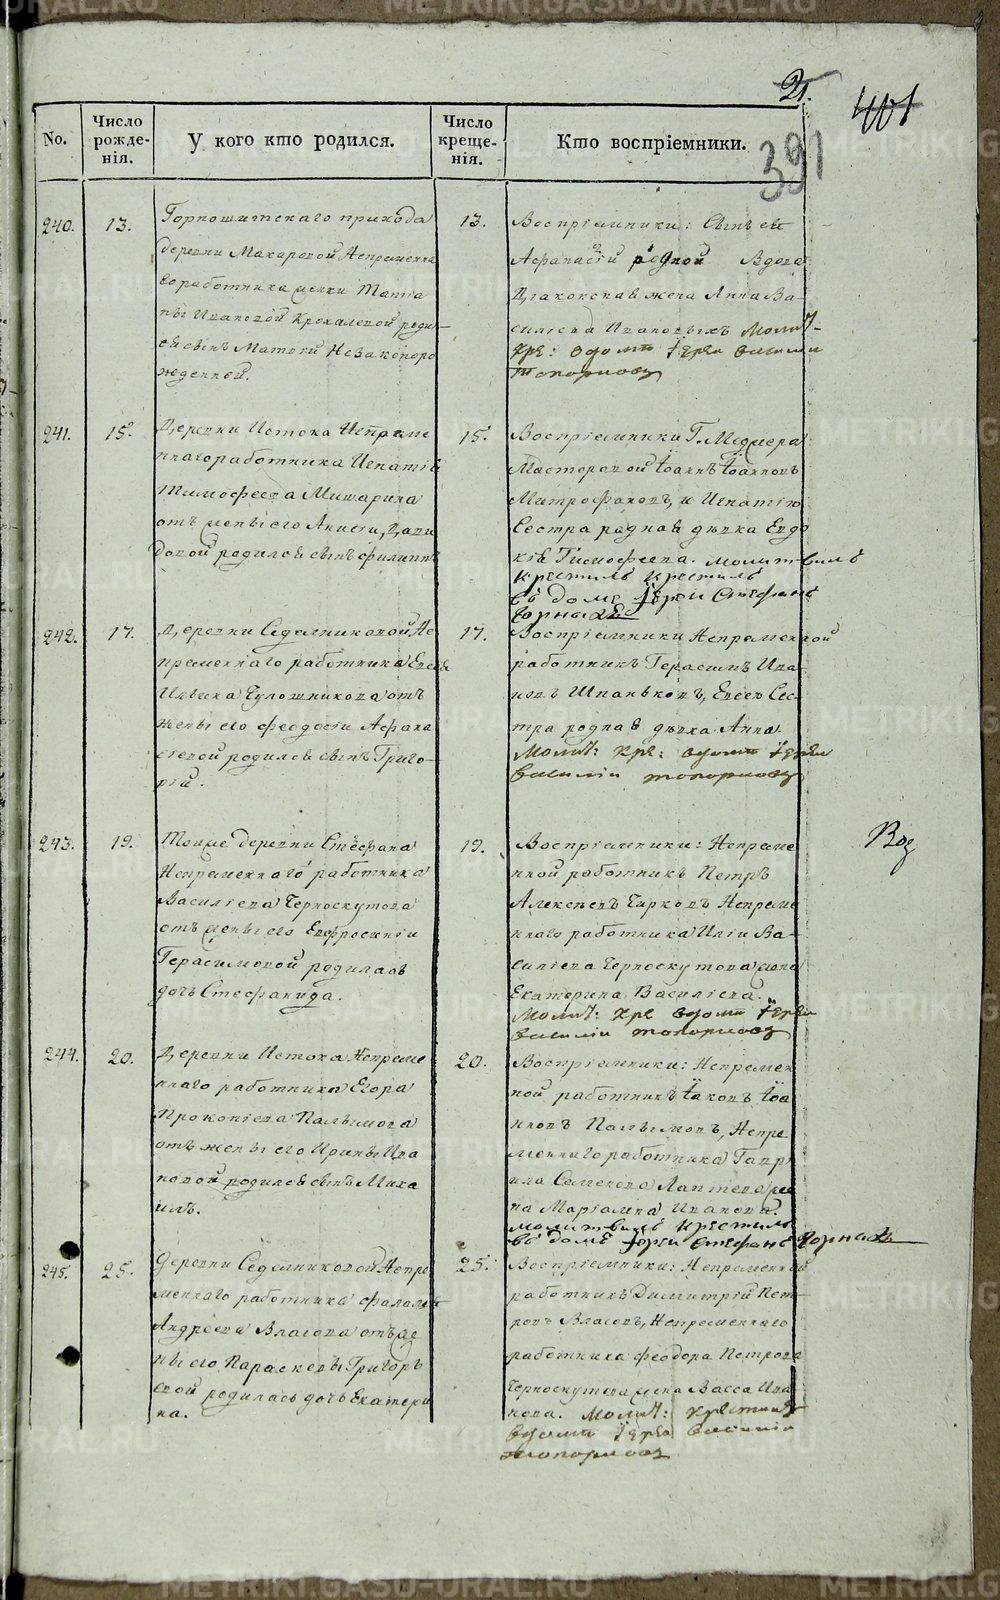 METRIKI.GASU-URAL.RU
21.
401
391
No.
Число рожде-
нія.
У кого кто родился.
Число креще-
нія.
Кто воспріемники.
240.
13.
Горнощитскаго прихода
деревни Макаровой Непременна
го работника женки Татіа
ны Ивановой Крохалевой роди-
ся сынъ Матѳей Незаконоро
жденной.
13.
Воспріемники: Сынъ ея
Афанасій родной Вдова
Діаконская жена Анна Ва-
силіева Ивановыхъ Молит-
кре: в дому Іерей Василий
Топорковъ
241.
15.
Деревни Истока Непреме
ннаго работника Игнатія
Тимофеева Мишарина
отъ жены его Анисіи Дави
довой родился сынъ Филиппъ
15.
Воспріемники Г. Меджера
Мастеровой Іоаннъ Іоанновъ
Митрофановъ, и Игнатію
Сестра родная дѣвка Евдо
кія Тимофеева. молитвилъ
крестилъ крестилъ
въ доме Іерей Стефанъ
Черныхъ
242.
17.
Деревни Седелниковой Не
пременнаго работника Евсея
Ильина Чулошникова отъ
жены его Феодосіи Афана
сіевой родился сынъ Григо-
рій.
17.
Воспріемники Непременной
работникъ Герасимъ Ива-
новъ Шпаньковъ, Евсею Сес-
тра родная дѣвка Анна.
Молит: кре: в дому Іерей
Василій Топорковъ
243.
19.
Тоиже деревни Стефана
Непременнаго работника
Василіева Черноскутова
отъ жены его Евфросиніи
Герасимовой родилась
дочь Стефанида.
19.
Воспріемники: Непреме
нной работникъ Петръ
Алексѣевъ Чарковъ Непреме
ннаго работника Иліи Ва-
силіева Черноскутова жена
Екатерина Василіева.
Молит: кре в дому Іерей
Василій Топорковъ
244.
20.
Деревни Истока Непреме
ннаго работника Егора
Прокопіева Палымова
отъ жены его Ирины Ива
новой родился сынъ Миха
илъ.
20.
Воспріемники: Непремен
ной работникъ Іаковъ Іоа
нновъ Палымовъ, Непре
меннаго работника Гаври
ила Семенова Лаптева же
на Маріамна Иванова.
молитвилъ крестилъ
въ доме Іерей Стефанъ Черныхъ
245.
25.
Деревни Седелниковой Непре
меннаго работника Фалалея
Андреева Власова отъ же
ны его Параскевы Григорь
евой родилась дочь Екатери
на.
25.
Воспріемники: Непременный
работникъ Димитрій Пет-
ровъ Власовъ, Непременнаго
работника Феодора Петрова
Черноскутова жена Васса Ива
нова. Молит: крестилъ
в дому Іерей Василій
Топорковъ